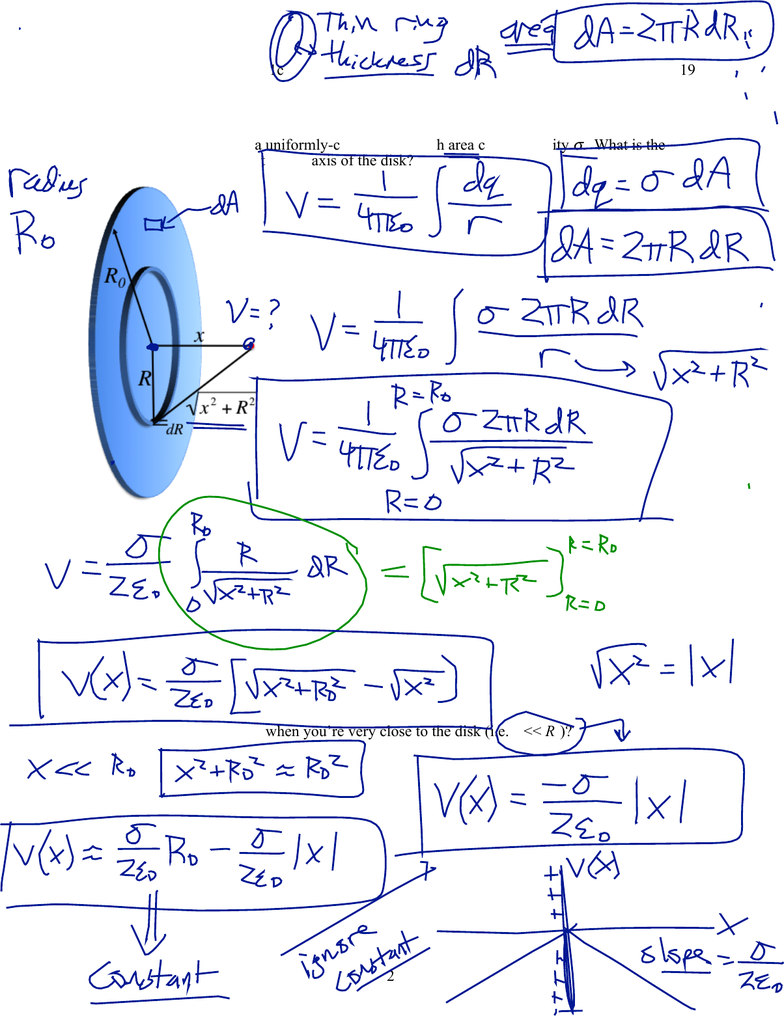 Thin ring area dA = 2πR dR
thickness dR
19
a uniformly-c h area c ity σ. What is the
axis of the disk?
radius
R₀
dA
V = 1/4πε₀ ∫ dq/r
dq = σ dA
dA = 2πR dR
R₀
V = ?
x
R
√x² + R²
dR
V = 1/4πε₀ ∫ σ 2πR dR / r → √x² + R²
R = R₀
V = 1/4πε₀ ∫ σ 2πR dR / √x² + R²
R = 0
V = σ/2ε₀ ∫₀^R₀ R/√x² + R² dR = [√x² + R²] R = R₀ R = 0
V(x) = σ/2ε₀ [√x² + R₀² − √x²]
√x² = |x|
when you're very close to the disk (i.e. << R )?
x << R₀ x² + R₀² ≈ R₀²
V(x) = −σ/2ε₀ |x|
V(x) ≈ σ/2ε₀ R₀ − σ/2ε₀ |x|
Constant
ignore
constant
2
V(x)
+
+
+
x
slope = σ/2ε₀